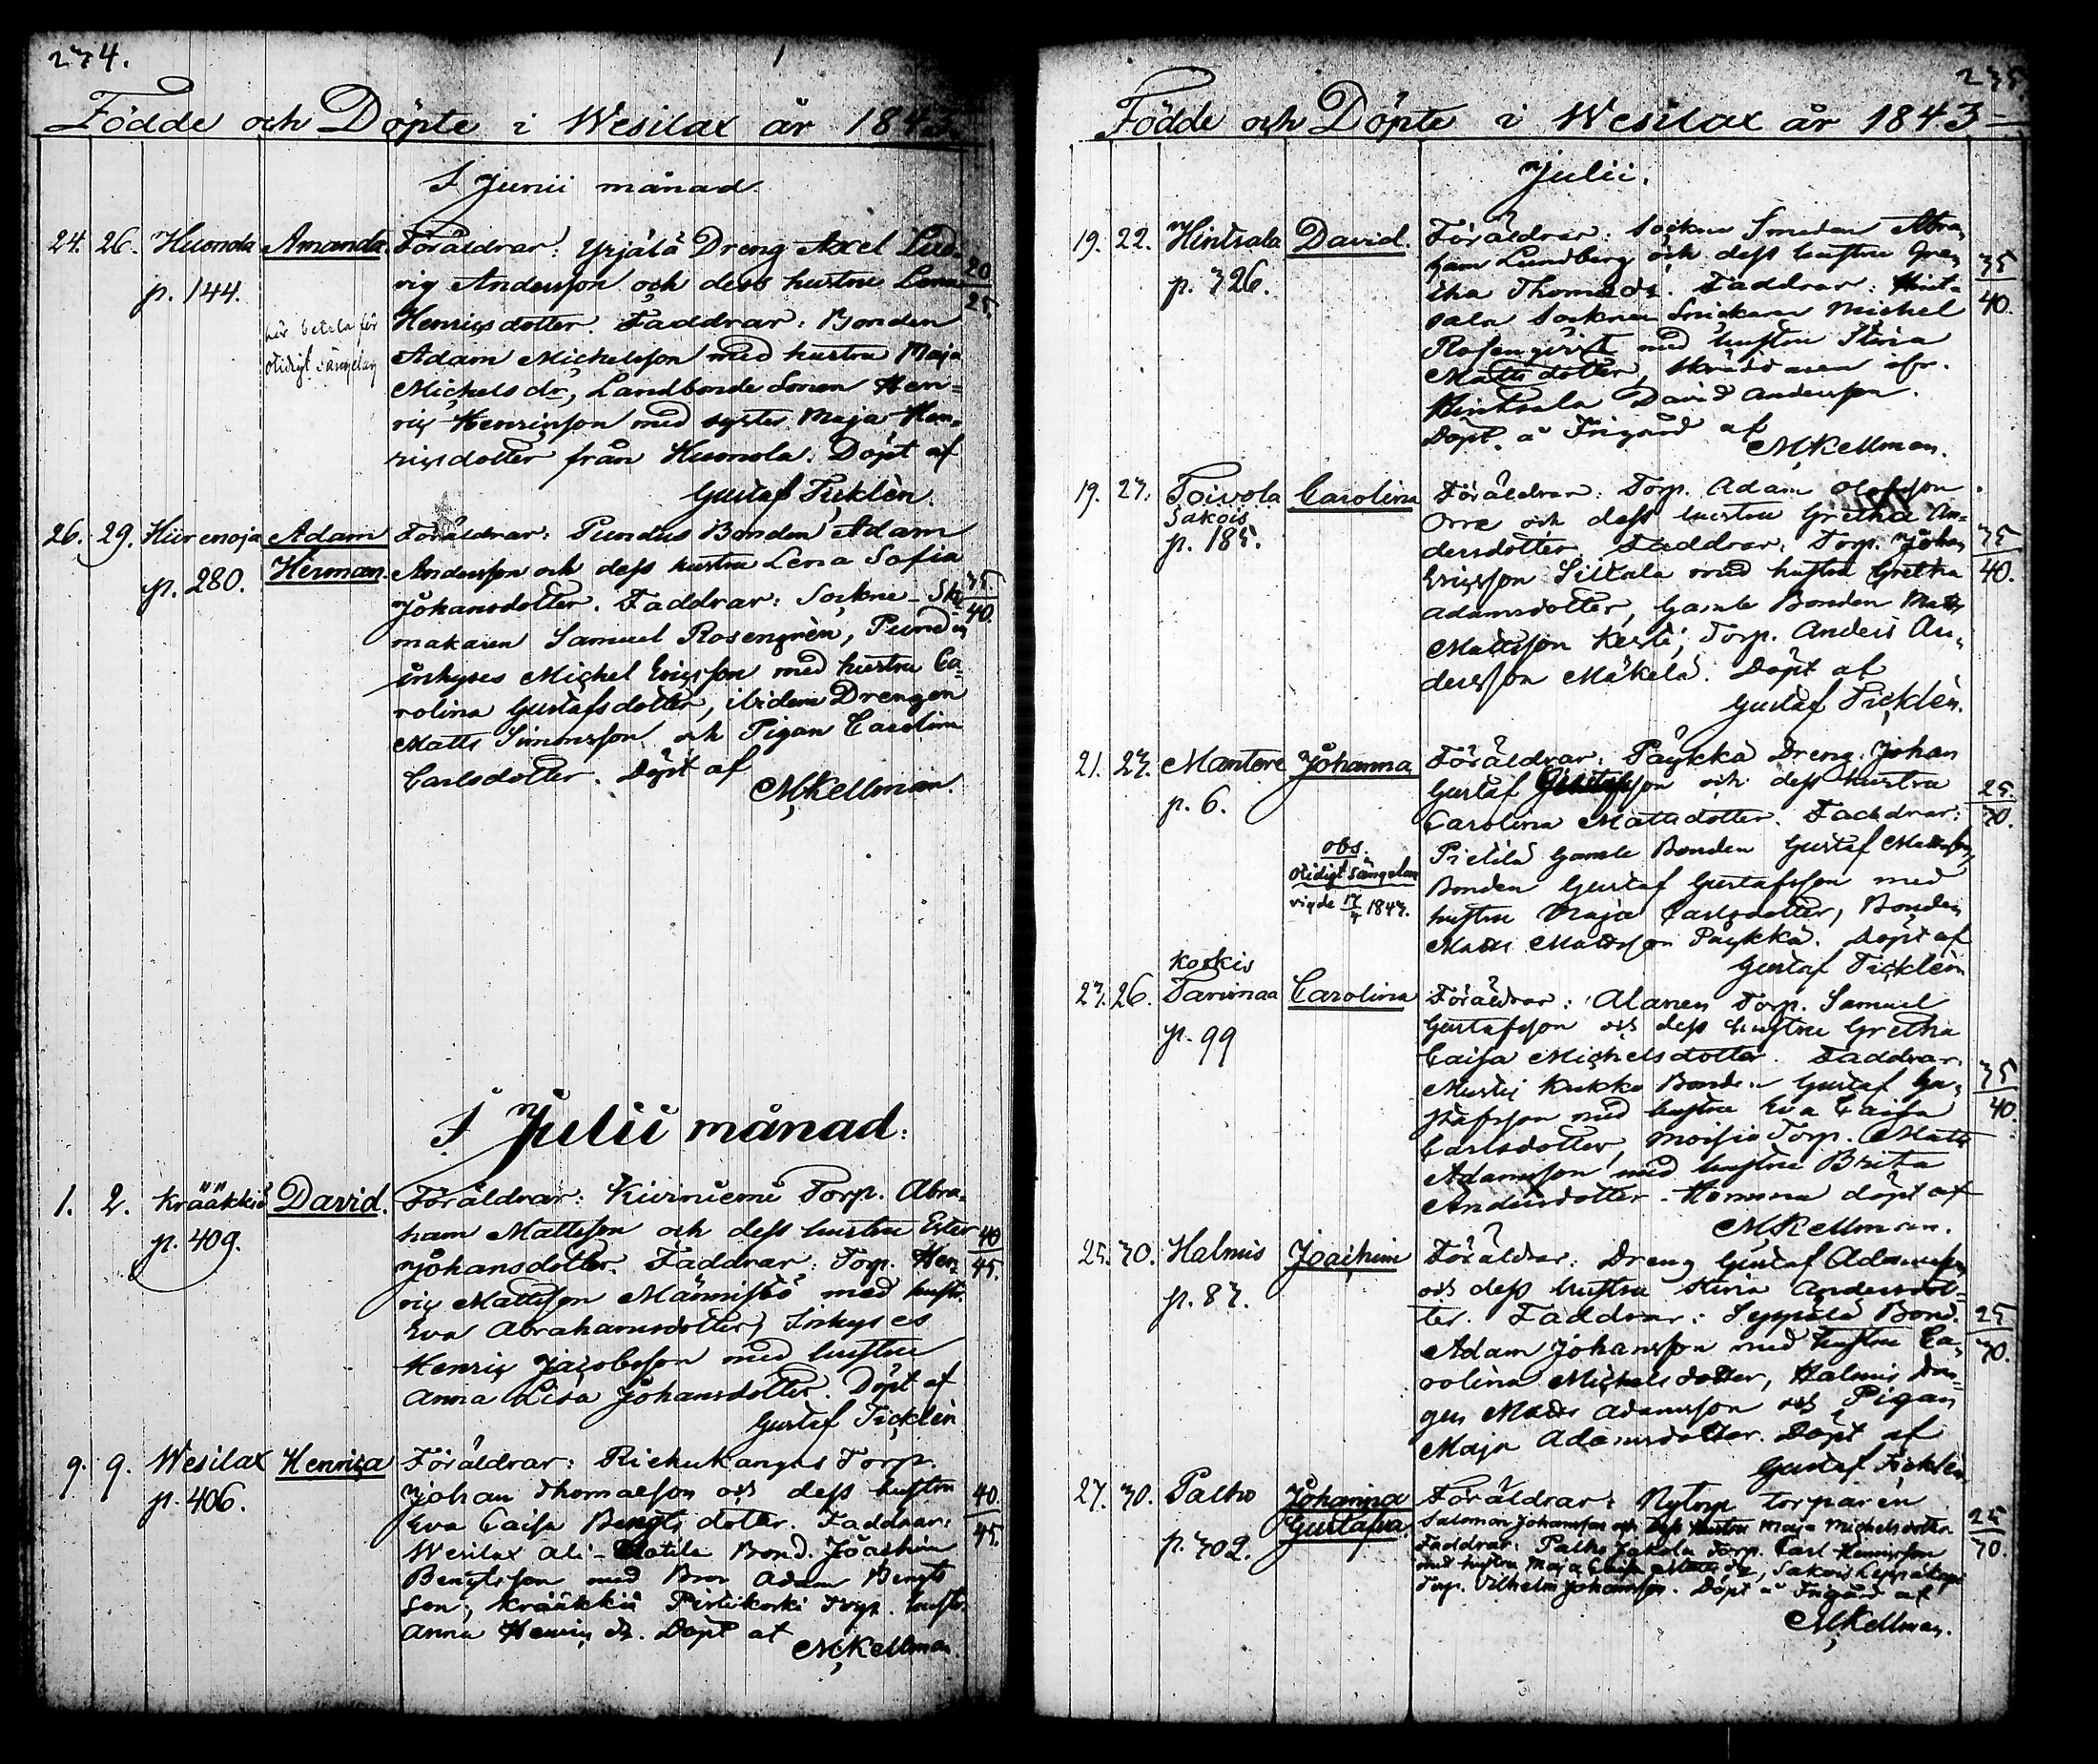 274.
Födde och Döpte i Wesilax år 1843.
I Junii månad
24. 26. Huonola Amanda. Föräldrar: Yrjälä Dreng Axel Lud-
p. 144. vig Andersson och dess hustru Lena 20/25.
Henricsdotter. Faddrar: Bonden
bör betala för
otidigt sängelag
Adam Michelsson med hustru Maja
Michelsdr, Landbonde Sonen Hen=
ric Henricsson med syster Maja Hen-
ricsdotter från Huonola. Döpt af
Gustaf Ticklèn.
26. 29. Hiirenoja Adam Föräldrar: Pundus Bonden Adam
p. 280. Herman. Andersson och dess hustru Lena Sofia
Johansdotter. Faddrar: Sockne-Sko 35/40.
makaren Samuel Rosengrèn, Pundus
inhyses Michel Ericsson med hustru Ca-
rolina Gustafsdotter, ibidem Drengen
Matts Simonsson och Pigan Carolina
Carlsdotter. Döpt af
MKellman.
I Julii månad:
1. 2. Krääkkiö David. Föräldrar: Kiviniemi Torp. Abra-
p. 409. ham Mattsson och dess hustru Ester 40/45.
Johansdotter. Faddrar: Torp. Hen-
ric Mattsson Männistö med hustr.
Eva Abrahamsdotter, Inhyses
Henric Jacobsson med hustru
Anna Lisa Johansdotter. Döpt af
Gustaf Ticklèn
9. 9. Wesilax Henrica Föräldrar: Torp.
p. 406. Johan Thomasson och dess hustru 40/45.
Eva Caisa Bengtsdotter. Faddrar:
Wesilax Ali- Bond. Joachim
Bengtsson med Bror Adam Bengts
son, Krääkkiö Torp. hustr.
Anna Henricsdr. Döpt af
MKellman.
235.
Födde och Döpte i Wesilax år 1843
Julii.
19. 22. Hintsala David. Föräldrar: Sockne Smeden Abra-
p. 326. ham Lundberg och dess hustru Gre- 35/40.
tha Thomædr. Faddrar: Hint-
sala Sockne Snickare Michel
Rosenqvist med hustru Stina
Mattsdotter, skräddaren ifr.
Hintsala David Andersson.
Döpt å Frigård af
MKellman.
19. 23. Toivola Carolina Föräldrar: Torp. Adam Olofsson
Sakois
p. 185. Orre och dess hustru Gretha An-
dersdotter. Faddrar: Torp. Johan 35/40.
Ericsson Siltala med hustru Gretha
Adamsdotter, Gamle Bonden Matts
Mattsson Kerti, Torp. Anders An-
dersson Mäkelä. Döpt af
Gustaf Ticklèn.
21. 23. Mantere Johanna Föräldrar: Päykkä Dreng Johan
p. 6. Gustaf Gustafsson och dess hustru 25/30.
Carolina Mattsdotter. Faddrar:
obs.
otidigt sängelag
vigde 17/4 1843.
Pietilä Gamle Bonden Gustaf Mattsson,
Bonden Gustaf Gustafsson med
hustru Maja Carlsdotter, Bonden
Matts Mattsson Päykkä. Döpt af
Gustaf Ticklèn
Koskis
23. 26. Tarimaa Carolina Föräldrar: Alanen Torp. Samuel
p. 99 Gustafsson och dess hustru Gretha
Caisa Michelsdotter. Faddrar:
Kukko Bonden Gustaf Gu- 35/40.
stafsson med hustru Eva Caisa
Carlsdotter, Moisio Torp. Matts
Adamsson med hustru Brita
Andersdotter. Hemma döpt af
MKellman.
25. 30. Halmis Joachim Föräldrar: Dreng Gustaf Adamsson
p. 83. och dess hustru Stina Andersdot-
ter. Faddrar: Seppälä Bond. 25/30.
Adam Johansson med hustru Ca-
rolina Michelsdotter, Halmis Dren-
gen Matts Adamsson och Pigan
Maja Adamsdotter. Döpt af
Gustaf Ticklèn
27. 30. Palho Johanna Föräldrar: Nytorp torparèn
p. 302. Gustafva. Salomon Johansson och dess hustru Maja Michelsdotter 25/30.
Faddrar: Palho Jakola Torp. Carl Henricsson
med hustru Maja Caisa Mattsdr, Sakois
Torp. Vilhelm Johansson. Döpt å Frigård af
MKellman.